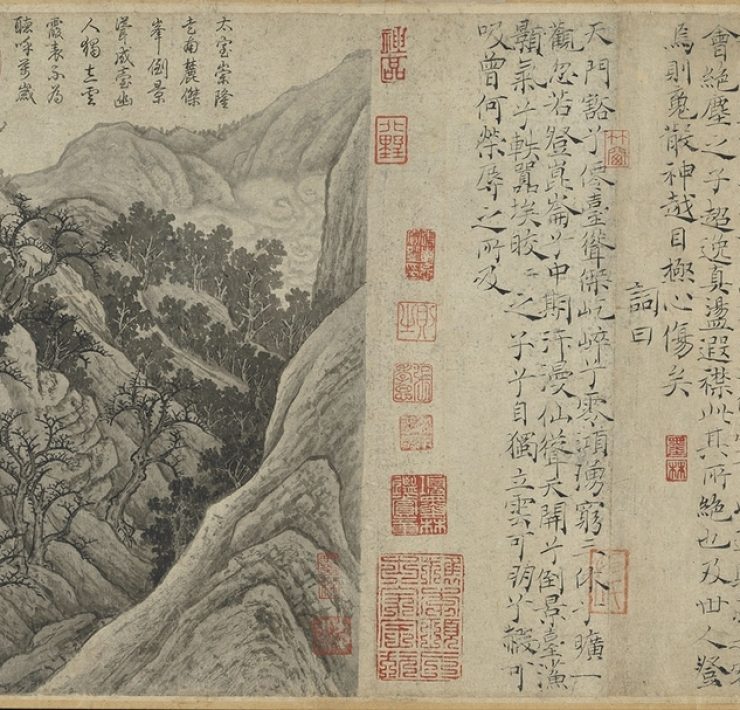 會絕塵之子超逸真盪遐襟此其所絕也及世人登
焉則魂散神越目極心傷矣
詞曰
天門豁兮僊臺聳傑屹崒兮零澒湧窮三休兮曠一
觀忽若登崑崙兮中期汗漫仙聳天開兮倒景臺
顥氣兮軼囂埃皎〻之子兮自獨立雲可朋兮霞可
吸曾何榮辱之所及
神品
墨林
太室崇隆
南麓傑
峯倒景
聳成臺幽
人獨立雲
霞表不為
聽呼萬歲